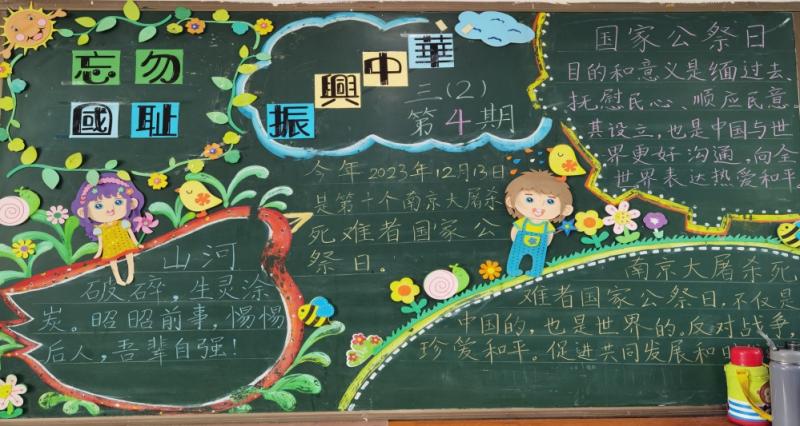 忘勿
國耻
振興中華
三(2)
第4期
国家公祭日
目的和意义是缅过去、
抚慰民心、顺应民意。
其设立,也是中国与世
界更好沟通,向全
世界表达热爱和平
今年2023年12月13日
是第十个南京大屠杀
死难者国家公
祭日。
山河
破碎,生灵涂
炭。昭昭前事,惕惕
后人,吾辈自强!
南京大屠杀死
难者国家公祭日,不仅是
中国的,也是世界的。反对战争,
珍爱和平。促进共同发展和